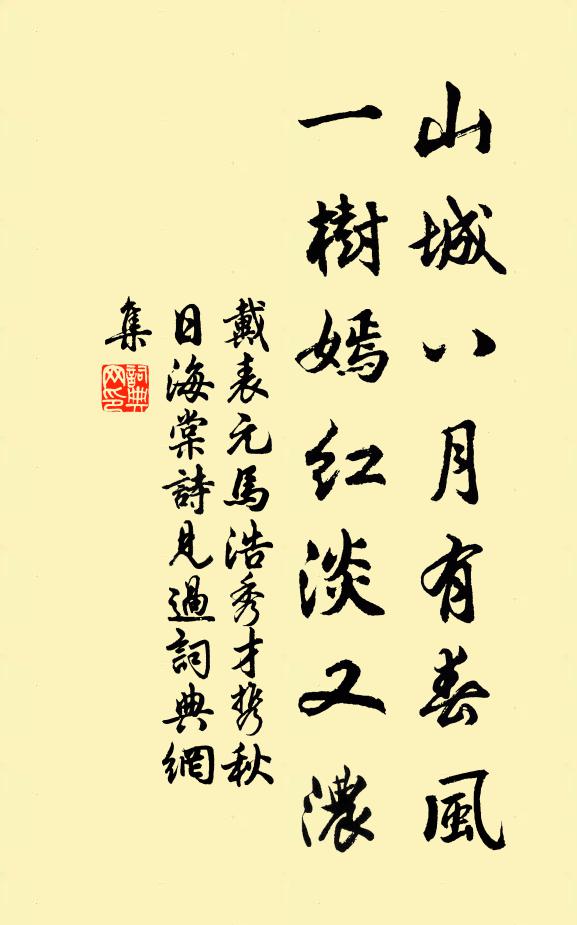 山城八月有春風
一樹嫣紅淡又濃
戴表元馬浩秀才携秋
日海棠詩見過詞典網
集
詞典
网印